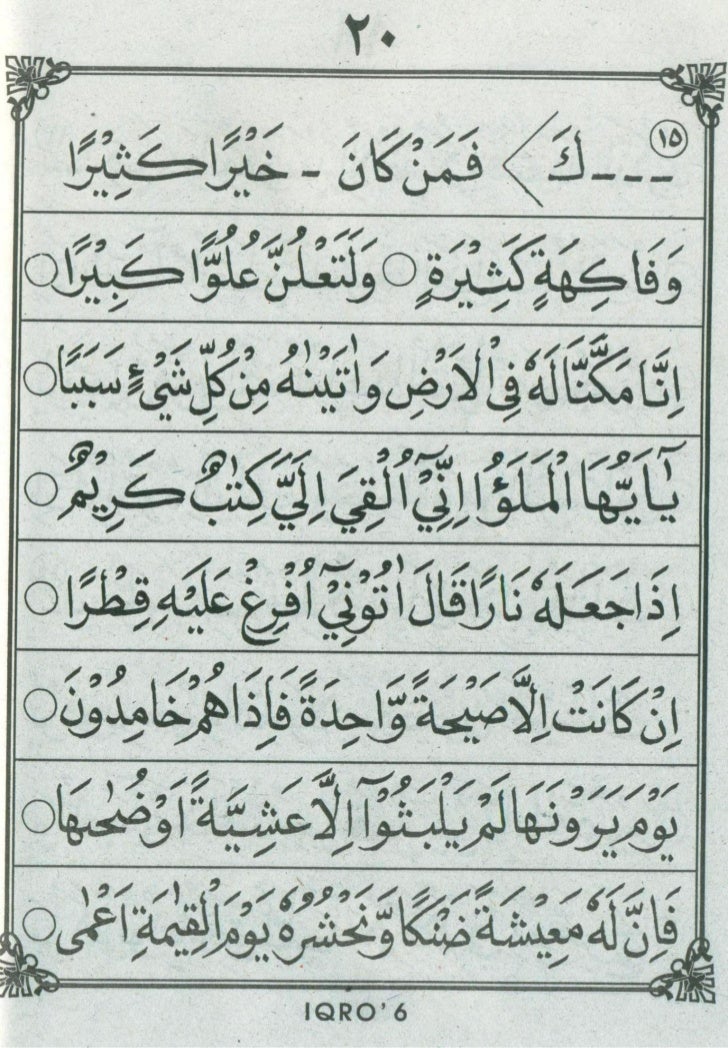 ٢٠
١٥ ---كَ > فَمَنْ كَانَ - خَيْرًا كَثِيْرًا
وَفَاكِهَةٍ كَثِيْرَةٍ ○ وَلَتَعْلُنَّ عُلُوًّا كَبِيْرًا ○
اِنَّا مَكَّنَّا لَهٗ فِى الْاَرْضِ وَاٰتَيْنٰهُ مِنْ كُلِّ شَيْءٍ سَبَبًا ○
يٰٓاَيُّهَا الْمَلَؤُا اِنِّيْٓ اُلْقِيَ اِلَيَّ كِتٰبٌ كَرِيْمٌ ○
اِذَا جَعَلَهٗ نَارًا قَالَ اٰتُوْنِيْٓ اُفْرِغْ عَلَيْهِ قِطْرًا ○
اِنْ كَانَتْ اِلَّا صَيْحَةً وَّاحِدَةً فَاِذَا هُمْ خَامِدُوْنَ ○
يَوْمَ يَرَوْنَهَا لَمْ يَلْبَثُوْٓا اِلَّا عَشِيَّةً اَوْ ضُحٰىهَا ○
فَاِنَّ لَهٗ مَعِيْشَةً ضَنْكًا وَّنَحْشُرُهٗ يَوْمَ الْقِيٰمَةِ اَعْمٰى ○
IQRO' 6